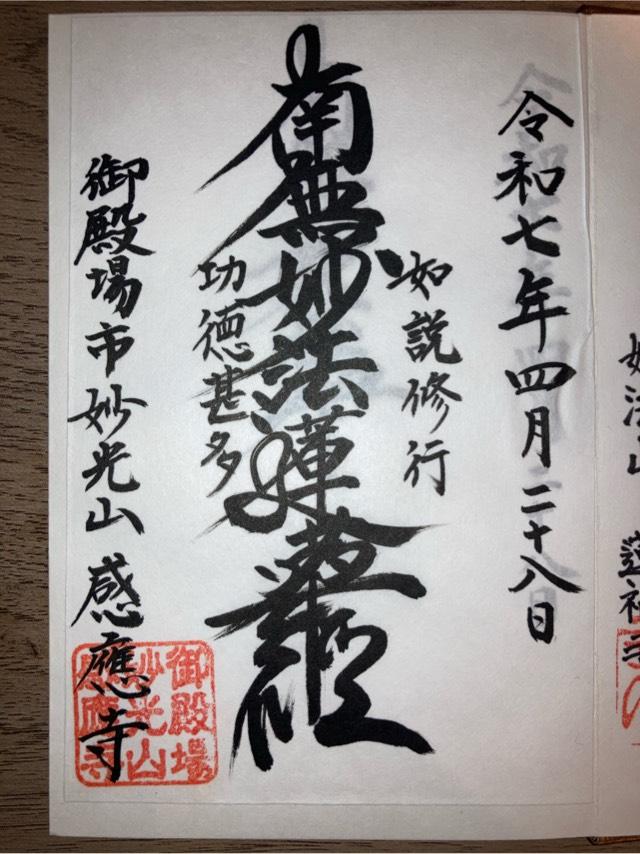 令和七年四月二十八日
如説修行
南無妙法蓮華経
功徳甚多
御殿場市妙光山感應寺
御殿場
妙光山
感應寺